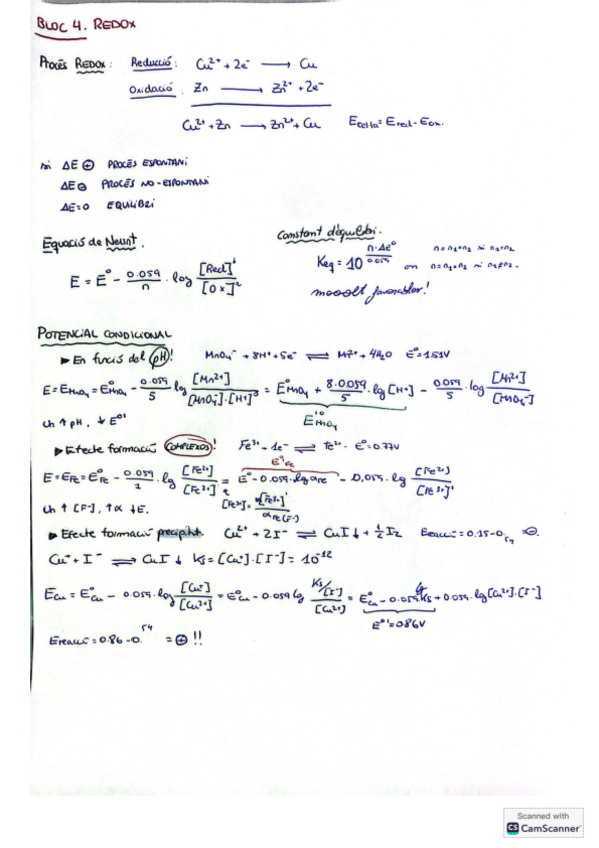 BLOC 4. REDOX
Procés REDOX: Reducció: Cu²⁺ + 2e⁻ ⟶ Cu
Oxidació: Zn ⟶ Zn²⁺ + 2e⁻
Cu²⁺ + Zn ⟶ Zn²⁺ + Cu Ecel·la = Ered - Eox.
si ΔE ⊕ PROCÉS ESPONTANI
ΔE ⊖ PROCÉS NO-ESPONTANI
ΔE=0 EQUILIBRI
Equació de Nernst. Constant d'equilibri.
E = E° - 0.059/n · log [Red]/[Ox] Keq = 10^(n·ΔE°/0.059) on n=n₁=n₂ si n₁=n₂
n=n₁·n₂ si n₁≠n₂.
mooolt favorable!
POTENCIAL CONDICIONAL
▸ En funció del pH! MnO₄⁻ + 8H⁺ + 5e⁻ ⇌ Mn²⁺ + 4H₂O E°=1.51V
E = E_MnO₄ = E°_MnO₄ - 0.059/5 log [Mn²⁺]/[MnO₄⁻]·[H⁺]⁸ = E°_MnO₄ + 8·0.059/5 · log [H⁺] - 0.059/5 · log [Mn²⁺]/[MnO₄⁻]
E°'_MnO₄
Un ↑ pH, ↓ E°'
▸ Efecte formació COMPLEXOS! Fe³⁺ - 1e⁻ ⇌ Fe²⁺ · E°=0.77V
E°'Fe
E = E_Fe = E°_Fe - 0.059/1 · log [Fe²⁺]/[Fe³⁺] = E° - 0.059·log α_Fe - 0.059·log [Fe²⁺]/[Fe³⁺]'
[Fe³⁺] = [Fe³⁺]'/α_Fe(F⁻)
Un ↑ [F⁻], ↑α ↓E.
▸ Efecte formació precipitat. Cu²⁺ + 2I⁻ ⇌ CuI↓ + ½ I₂ Ereacció = 0.15-0.54 ⊖.
Cu⁺ + I⁻ ⇌ CuI↓ Ks = [Cu⁺]·[I⁻] = 10⁻¹²
E_Cu = E°_Cu - 0.059·log [Cu⁺]/[Cu²⁺] = E°_Cu - 0.059 log (Ks/[I⁻])/[Cu²⁺] = E°_Cu - 0.059 log Ks + 0.059·log [Cu²⁺]·[I⁻]
E°' = 0.86V
Ereacció = 0.86-0.54 = ⊕ !!
Scanned with
CS CamScanner